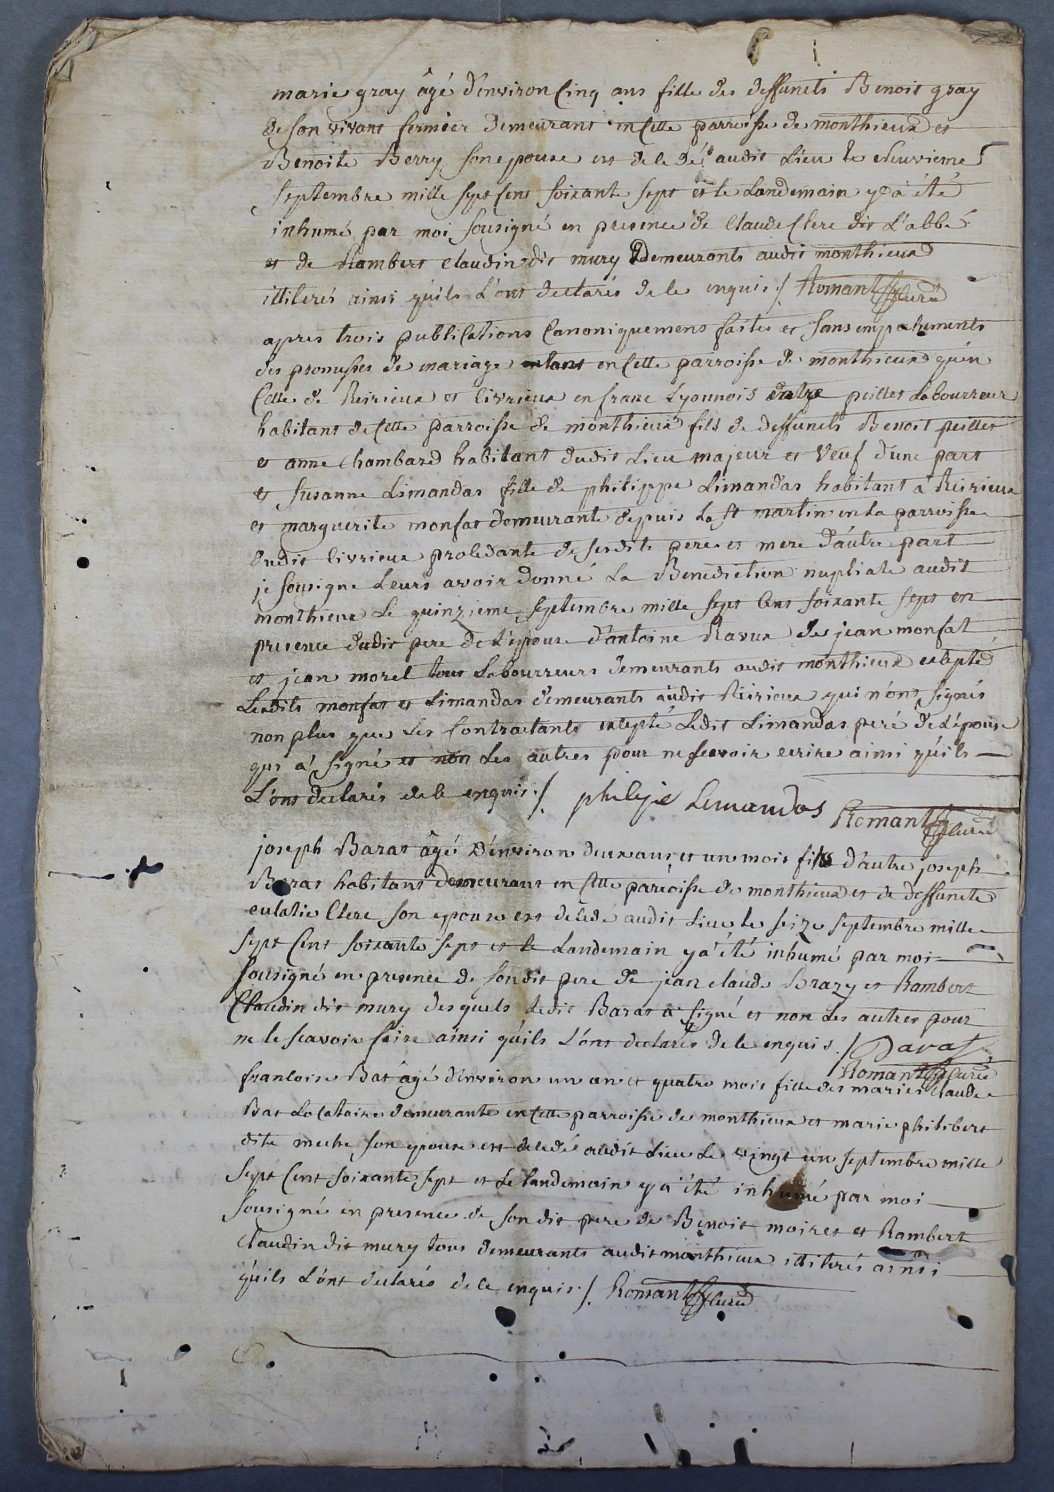 marie gray âgé d'environ Cinq ans fille des deffuncts Benoit gray
de son vivant fermier demeurant en Cette parroisse de monthieux et
Benoite Berry son epouse est decedé audit Lieu le
septembre mille sept Cens soixante sept et le Landemain y a été
inhumé par moi sousigné en presence de Claude Clere dit L'abbé
et de Rambert Claudin dit mury demeurants audit monthieux
illiterés ainsi qu'ils L'ont declarés de ce enquis ./. Romant Curé
apres trois publications Canoniquement faites et sans empechements
des promesses de mariage tant en Cette parroisse de monthieux qu'en
Celle de Reirieux et Civrieux en franc Lyonnois entre peillet Labourreur
habitant de Cette parroisse de monthieux fils de deffuncts Benoit peillet
et anne Chambard habitant dudit Lieu majeur et veuf d'une part
et Susanne Limandas fille de philippe Limandas habitant a Reirieux
et marguerite monfat demeurante depuis La St martin en La parroisse
dudit Civrieux procedante de sesdits pere et mere d'autre part
je sousigne Leurs avoir donné La Benediction nuptiale audit
monthieux Le quinzieme septembre mille sept Cens soixante sept en
presence dudit pere de L'epouse d'antoine Ravux de jean monfat
et jean morel tous Labourreurs demeurants audit monthieux excepté
Lesdits monfat et Limandas demeurants audit Reirieux qui n'ont signés
non plus que Les Contractants excepté Ledit Limandas pere de L'epouse
qui a signé et non Les autres pour ne scavoir ecrire ainsi qu'ils
L'ont declarés de ce enquis ./. philipe Limandas Romant Curé
joseph Barat âgé d'environ deux ans et un mois fils d'autre joseph
Barat habitant demeurant en Cette parroisse de monthieux et de deffuncte
eulalie Clere son epouse est decedé audit Lieu le seize septembre mille
sept Cens soixante sept et le Landemain y a été inhumé par moi
sousigné en presence de sondit pere de jean claude Brazy et Rambert
Claudin dit mury desquels Ledit Barat a signé et non Les autres pour
ne le scavoir faire ainsi qu'ils L'ont declarés de ce enquis ./. Barat
Romant Curé
francoise Bat âgé d'environ un an et quatre mois fille des mariés Claude
Bat Locataire demeurante en Cette parroisse de monthieux et marie philibert
dite meche son epouse est decedé audit Lieu Le vingt un septembre mille
sept Cens soixante sept et Le landemain y a été inhumé par moi
sousigné en presence de sondit pere de Benoit moiret et Rambert
Claudin dit mury tous demeurants audit monthieux illiterés ainsi
qu'ils L'ont declarés de ce enquis ./. Romant Curé